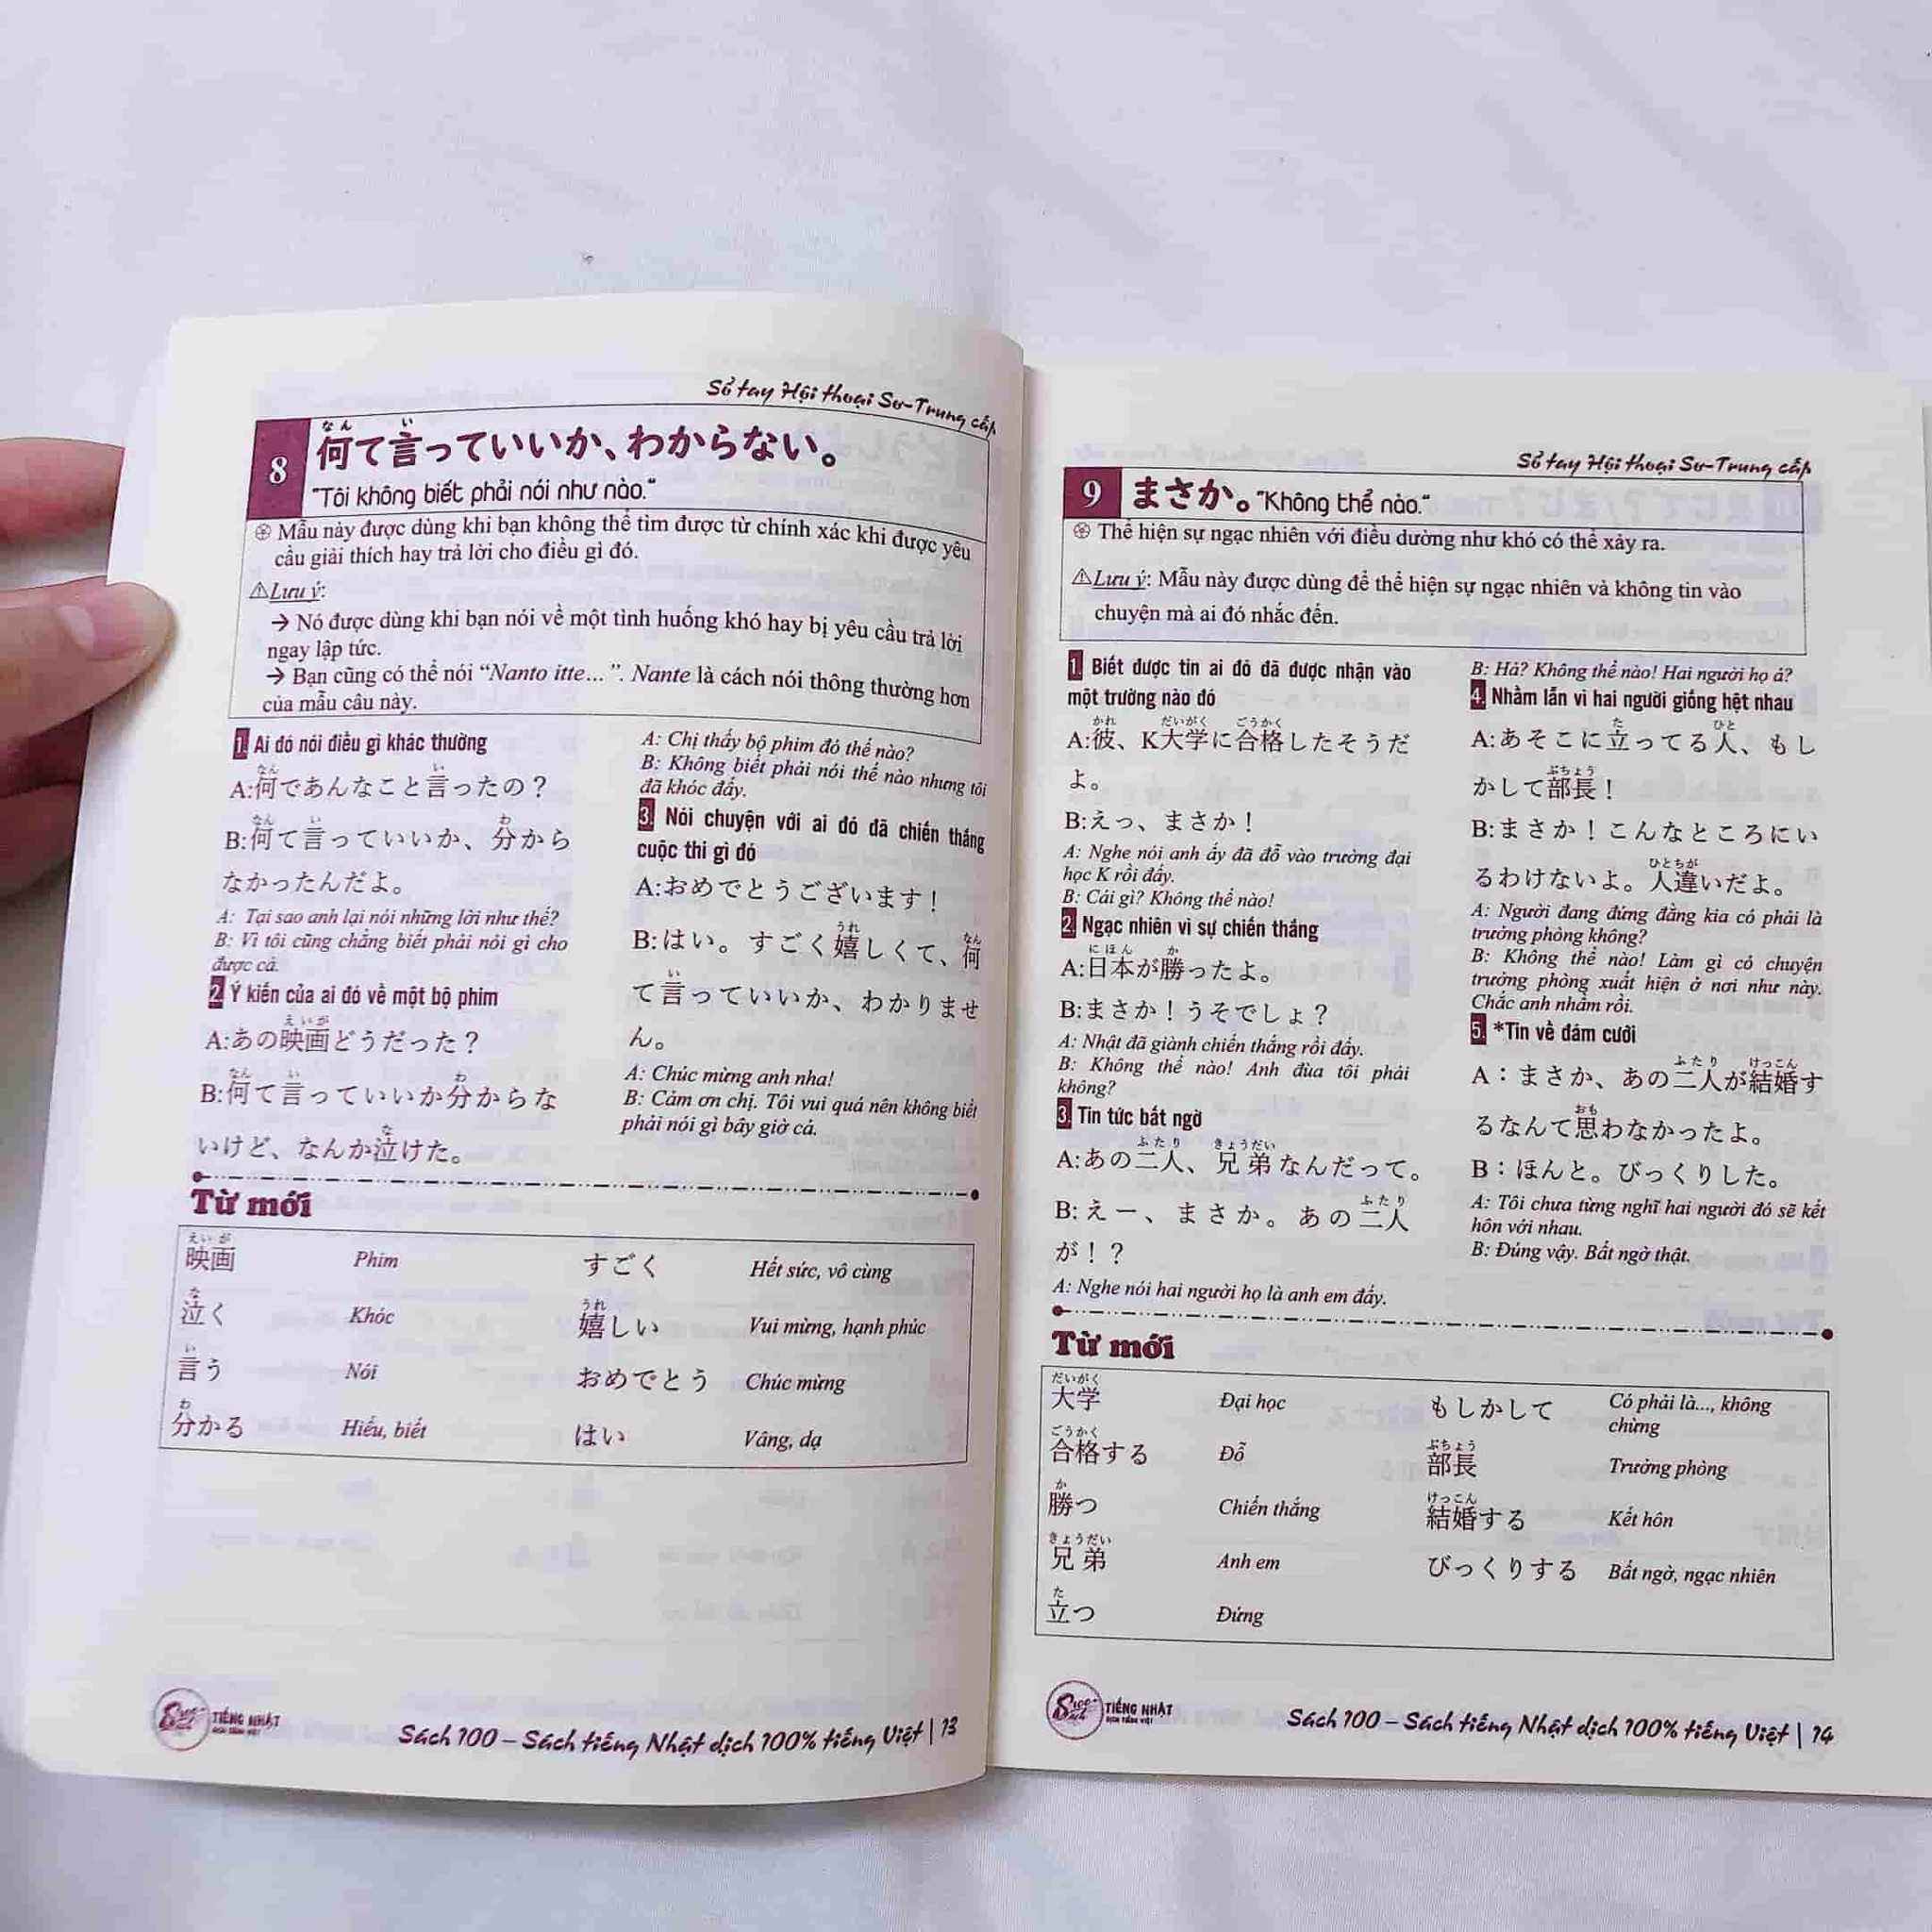 Sổ tay Hội thoại Sơ-Trung cấp
8
何て言っていいか、わからない。
"Tôi không biết phải nói như nào."
Mẫu này được dùng khi bạn không thể tìm được từ chính xác khi được yêu
cầu giải thích hay trả lời cho điều gì đó.
⚠Lưu ý:
→ Nó được dùng khi bạn nói về một tình huống khó hay bị yêu cầu trả lời
ngay lập tức.
→ Bạn cũng có thể nói “Nanto itte... ”. Nante là cách nói thông thường hơn
của mẫu câu này.
1. Ai đó nói điều gì khác thường
A:何であんなこと言ったの？
B:何て言っていいか、分から
なかったんだよ。
A: Tại sao anh lại nói những lời như thế?
B: Vì tôi cũng chẳng biết phải nói gì cho
được cả.
2. Ý kiến của ai đó về một bộ phim
A:あの映画どうだった？
B:何て言っていいか分からな
いけど、なんか泣けた。
A: Chị thấy bộ phim đó thế nào?
B: Không biết phải nói thế nào nhưng tôi
đã khóc đấy.
3. Nói chuyện với ai đó đã chiến thắng
cuộc thi gì đó
A:おめでとうございます！
B:はい。すごく嬉しくて、何
て言っていいか、わかりませ
ん。
A: Chúc mừng anh nha!
B: Cảm ơn chị. Tôi vui quá nên không biết
phải nói gì bây giờ cả.
Từ mới
映画 Phim すごく Hết sức, vô cùng
泣く Khóc 嬉しい Vui mừng, hạnh phúc
言う Nói おめでとう Chúc mừng
分かる Hiểu, biết はい Vâng, dạ
TIẾNG NHẬT
DỊCH TIẾNG VIỆT
Sách 100 – Sách tiếng Nhật dịch 100% tiếng Việt | 13
Sổ tay Hội thoại Sơ-Trung cấp
9
まさか。"Không thể nào."
Thể hiện sự ngạc nhiên với điều dường như khó có thể xảy ra.
⚠Lưu ý: Mẫu này được dùng để thể hiện sự ngạc nhiên và không tin vào
chuyện mà ai đó nhắc đến.
1. Biết được tin ai đó đã được nhận vào
một trường nào đó
A:彼、K大学に合格したそうだ
よ。
B:えっ、まさか！
A: Nghe nói anh ấy đã đỗ vào trường đại
học K rồi đấy.
B: Cái gì? Không thể nào!
2. Ngạc nhiên vì sự chiến thắng
A:日本が勝ったよ。
B:まさか！うそでしょ？
A: Nhật đã giành chiến thắng rồi đấy.
B: Không thể nào! Anh đùa tôi phải
không?
3. Tin tức bất ngờ
A:あの二人、兄弟なんだって。
B:えー、まさか。あの二人
が！？
A: Nghe nói hai người họ là anh em đấy.
B: Hả? Không thể nào! Hai người họ á?
4. Nhầm lẫn vì hai người giống hệt nhau
A:あそこに立ってる人、もし
かして部長！
B:まさか！こんなところにい
るわけないよ。人違いだよ。
A: Người đang đứng đằng kia có phải là
trưởng phòng không?
B: Không thể nào! Làm gì có chuyện
trưởng phòng xuất hiện ở nơi như này.
Chắc anh nhầm rồi.
5. *Tin về đám cưới
A：まさか、あの二人が結婚す
るなんて思わなかったよ。
B：ほんと。びっくりした。
A: Tôi chưa từng nghĩ hai người đó sẽ kết
hôn với nhau.
B: Đúng vậy. Bất ngờ thật.
Từ mới
大学 Đại học もしかして Có phải là..., không
chừng
合格する Đỗ 部長 Trưởng phòng
勝つ Chiến thắng 結婚する Kết hôn
兄弟 Anh em びっくりする Bất ngờ, ngạc nhiên
立つ Đứng
TIẾNG NHẬT
DỊCH TIẾNG VIỆT
Sách 100 – Sách tiếng Nhật dịch 100% tiếng Việt | 14